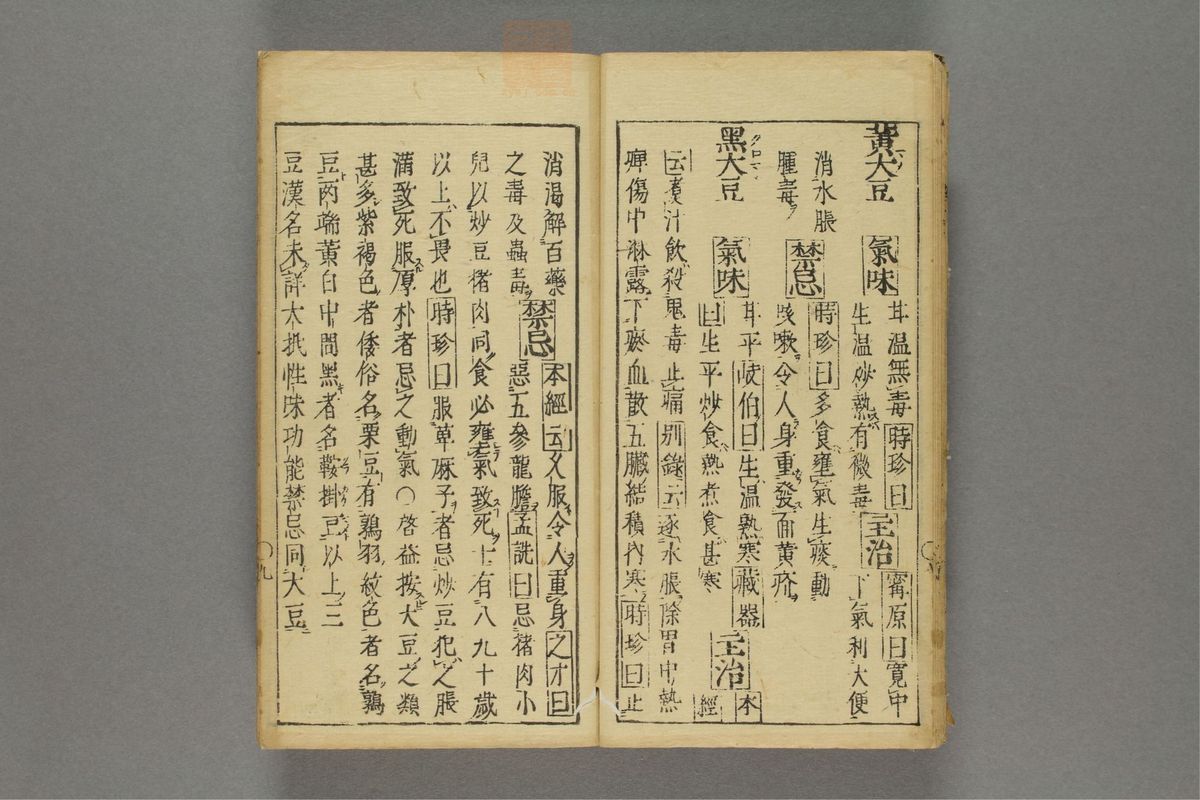 黃大豆
氣味
甘温無毒時珍曰
生温炒熟有微毒
主治
寗原曰寛中
下氣利大便
消水脹
腫毒
禁忌
時珍曰多食壅氣生痰動
咳嗽令人身重發面黃疥
黑大豆
クロ
氣味
甘平岐伯曰生温熟寒藏器
曰生平炒食熱煮食甚寒
主治
本
經
云煮汁飲殺鬼毒止痛別錄云逐水脹除胃中熱
痺傷中淋露下瘀血散五臟結積內寒時珍曰止
消渴解百藥
之毒及蟲毒
禁忌
本經云久服令人重身之才曰
惡五參龍膽孟詵曰忌猪肉小
兒以炒豆猪肉同食必壅氣致死十有八九十歲
以上不畏也時珍曰服草麻子者忌炒豆犯之脹
滿致死服厚朴者忌之動氣〇啓益按大豆之類
甚多紫褐色者倭俗名栗豆有鶉羽紋色者名鶉
豆兩端黃白中間黑者名鞍掛豆以上三
豆漢名未詳大抵性味功能禁忌同大豆
〇九